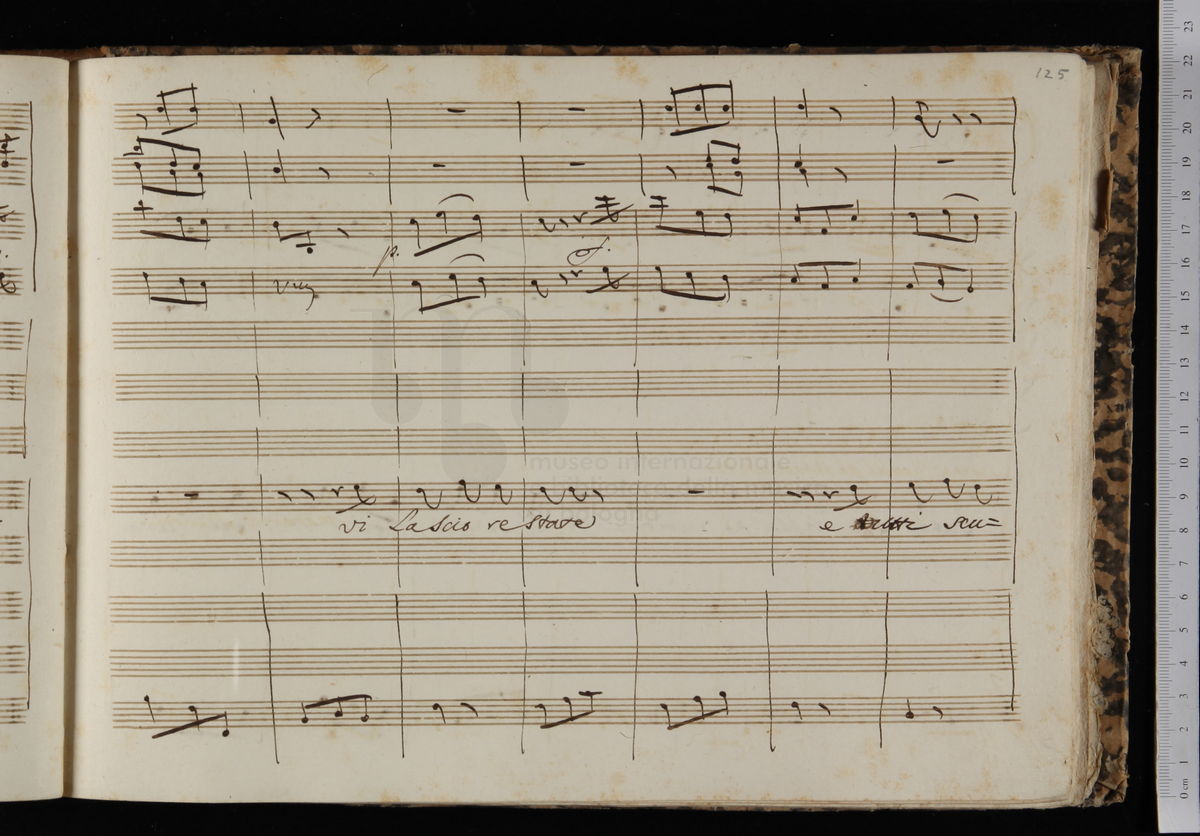 125
p.
f.
unis
vi lascio restate
e tutti scu=
museo internazionale
bologna
23
22
21
20
19
18
17
16
15
14
13
12
11
10
9
8
7
6
5
4
3
2
1
0 cm